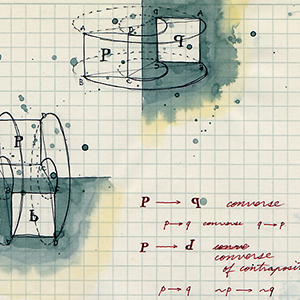 A A
P ꟼ
B C B
P
P → ꟼ converse
p → q converse q → p
P → d conve
converse
of contraposi
p → q ~p → ~q